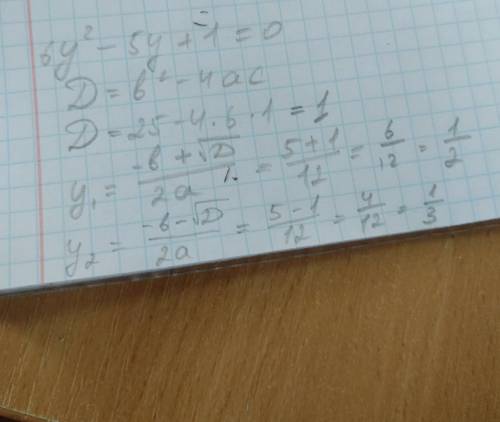 6y² - 5y + 1 = 0
D = b² - 4ac
D = 25 - 4·6·1 = 1
y₁ = (-b + √D)/2a = (5+1)/12 = 6/12 = 1/2
y₂ = (-b - √D)/2a = (5-1)/12 = 4/12 = 1/3